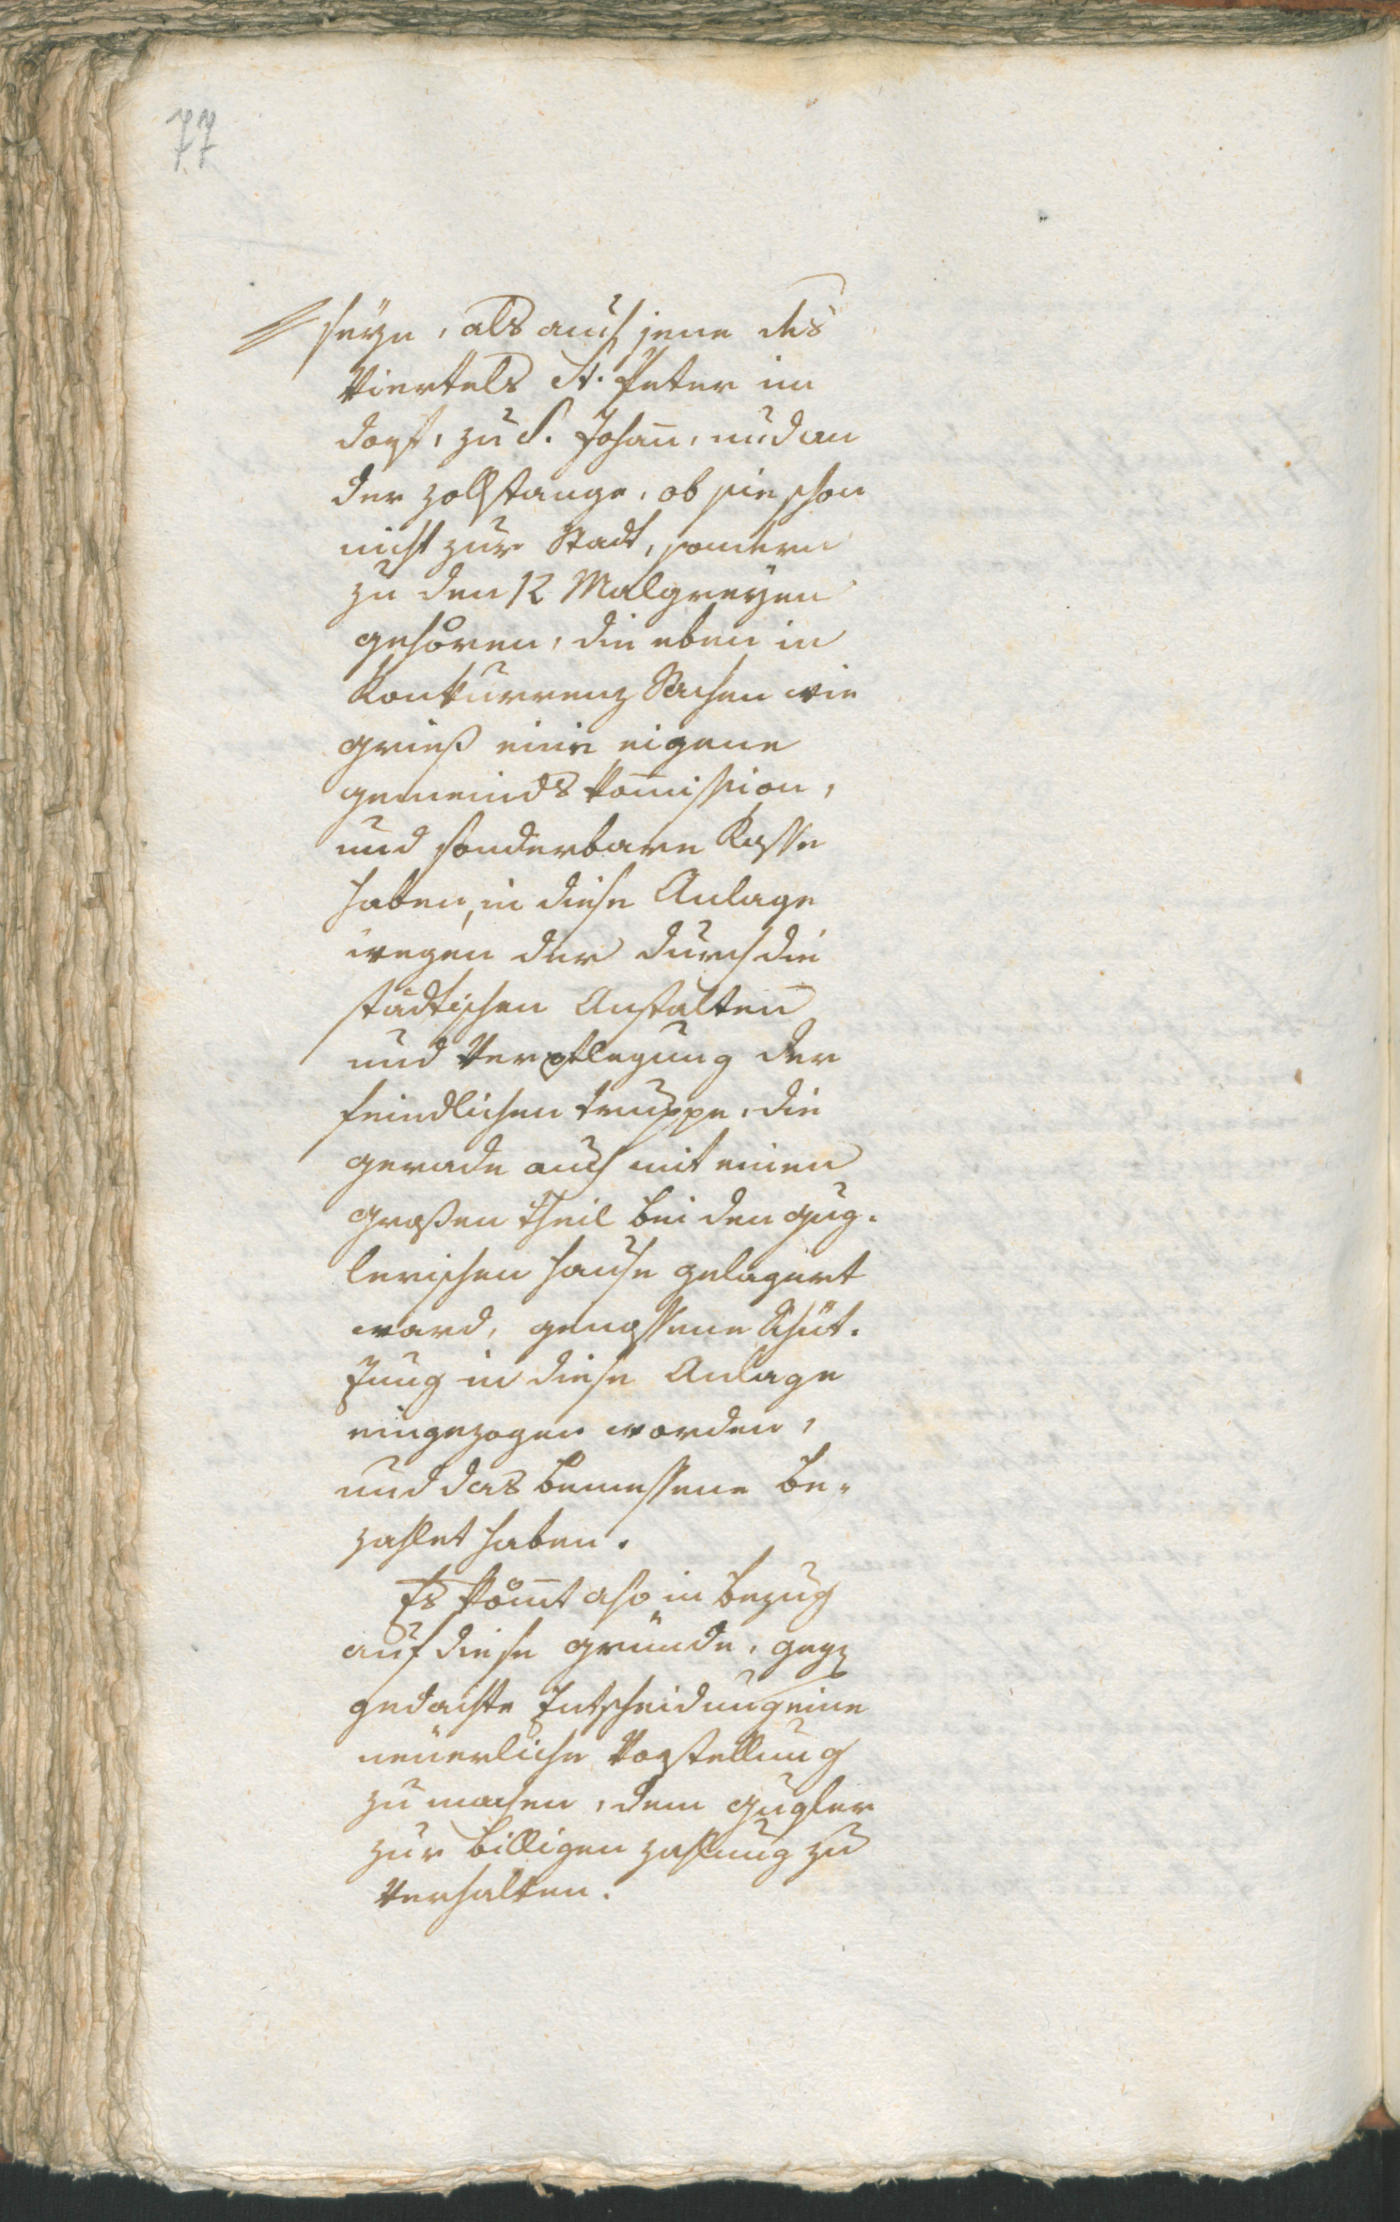 77
seyn, als auch jene des
Viertels St. Peter im
dorf, zu S. Johañ, und an
der Zollstange, ob sie schon
nicht zur Stadt, sondern
zu den 12 Malgreyen
gehören, die eben in
Konkurrenz Sachen wie
Grieß eine eigene
gemeinds Kom̄ission,
und sonderbare Kasse
haben, in diese Anlage
wegen der durch die
städtischen Anstalten
und Verpflegung der
feindlichen truppe, die
gerade auch mit einen
großen theil bei den Gug-
lerischen Hause gelagert
ward, genossene Schüt-
zung in diese Anlage
eingezogen worden,
und das bemessene be-
zahlet haben.
Es köm̄t also in bezug
auf diese gründe, gegen
gedachte Entscheidung eine
neüerliche Vorstellung
zu machen, dem Gugler
zur billigen zahlung zu
Verhalten.